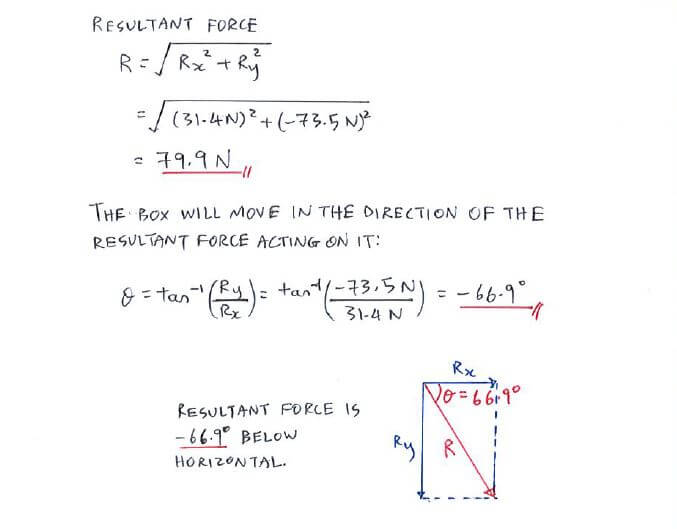 RESULTANT FORCE
R = √(Rx² + Ry²)
= √((31.4N)² + (-73.5 N)²)
= 79.9 N
THE BOX WILL MOVE IN THE DIRECTION OF THE
RESULTANT FORCE ACTING ON IT:
θ = tan⁻¹(Ry/Rx) = tan⁻¹(-73.5 N/31.4 N) = -66.9°
Rx
θ = 66.9°
RESULTANT FORCE IS
-66.9° BELOW
HORIZONTAL.
Ry
R